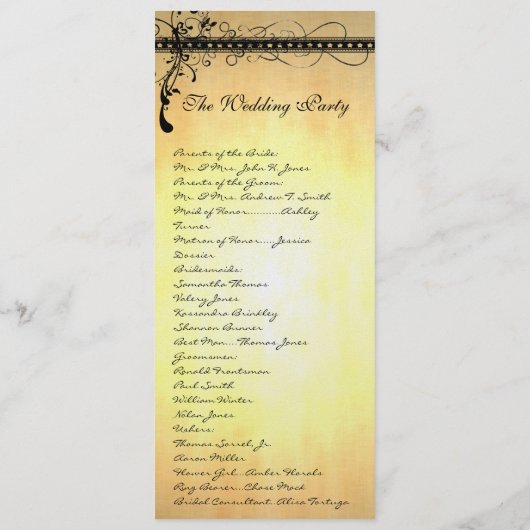 The Wedding Party
Parents of the Bride:
Mr. & Mrs. John H. Jones
Parents of the Groom:
Mr. & Mrs. Andrew T. Smith
Maid of Honor...........Ashley
Turner
Matron of Honor.....Jessica
Dossier
Bridesmaids:
Samantha Thomas
Valery Jones
Kassandra Brinkley
Shannon Bunner
Best Man....Thomas Jones
Groomsmen:
Ronald Frontsman
Paul Smith
William Winter
Nolan Jones
Ushers:
Thomas Sorrel, Jr.
Aaron Miller
Flower Girl...Amber Florals
Ring Bearer...Chase Mock
Bridal Consultant...Alisa Tortuga